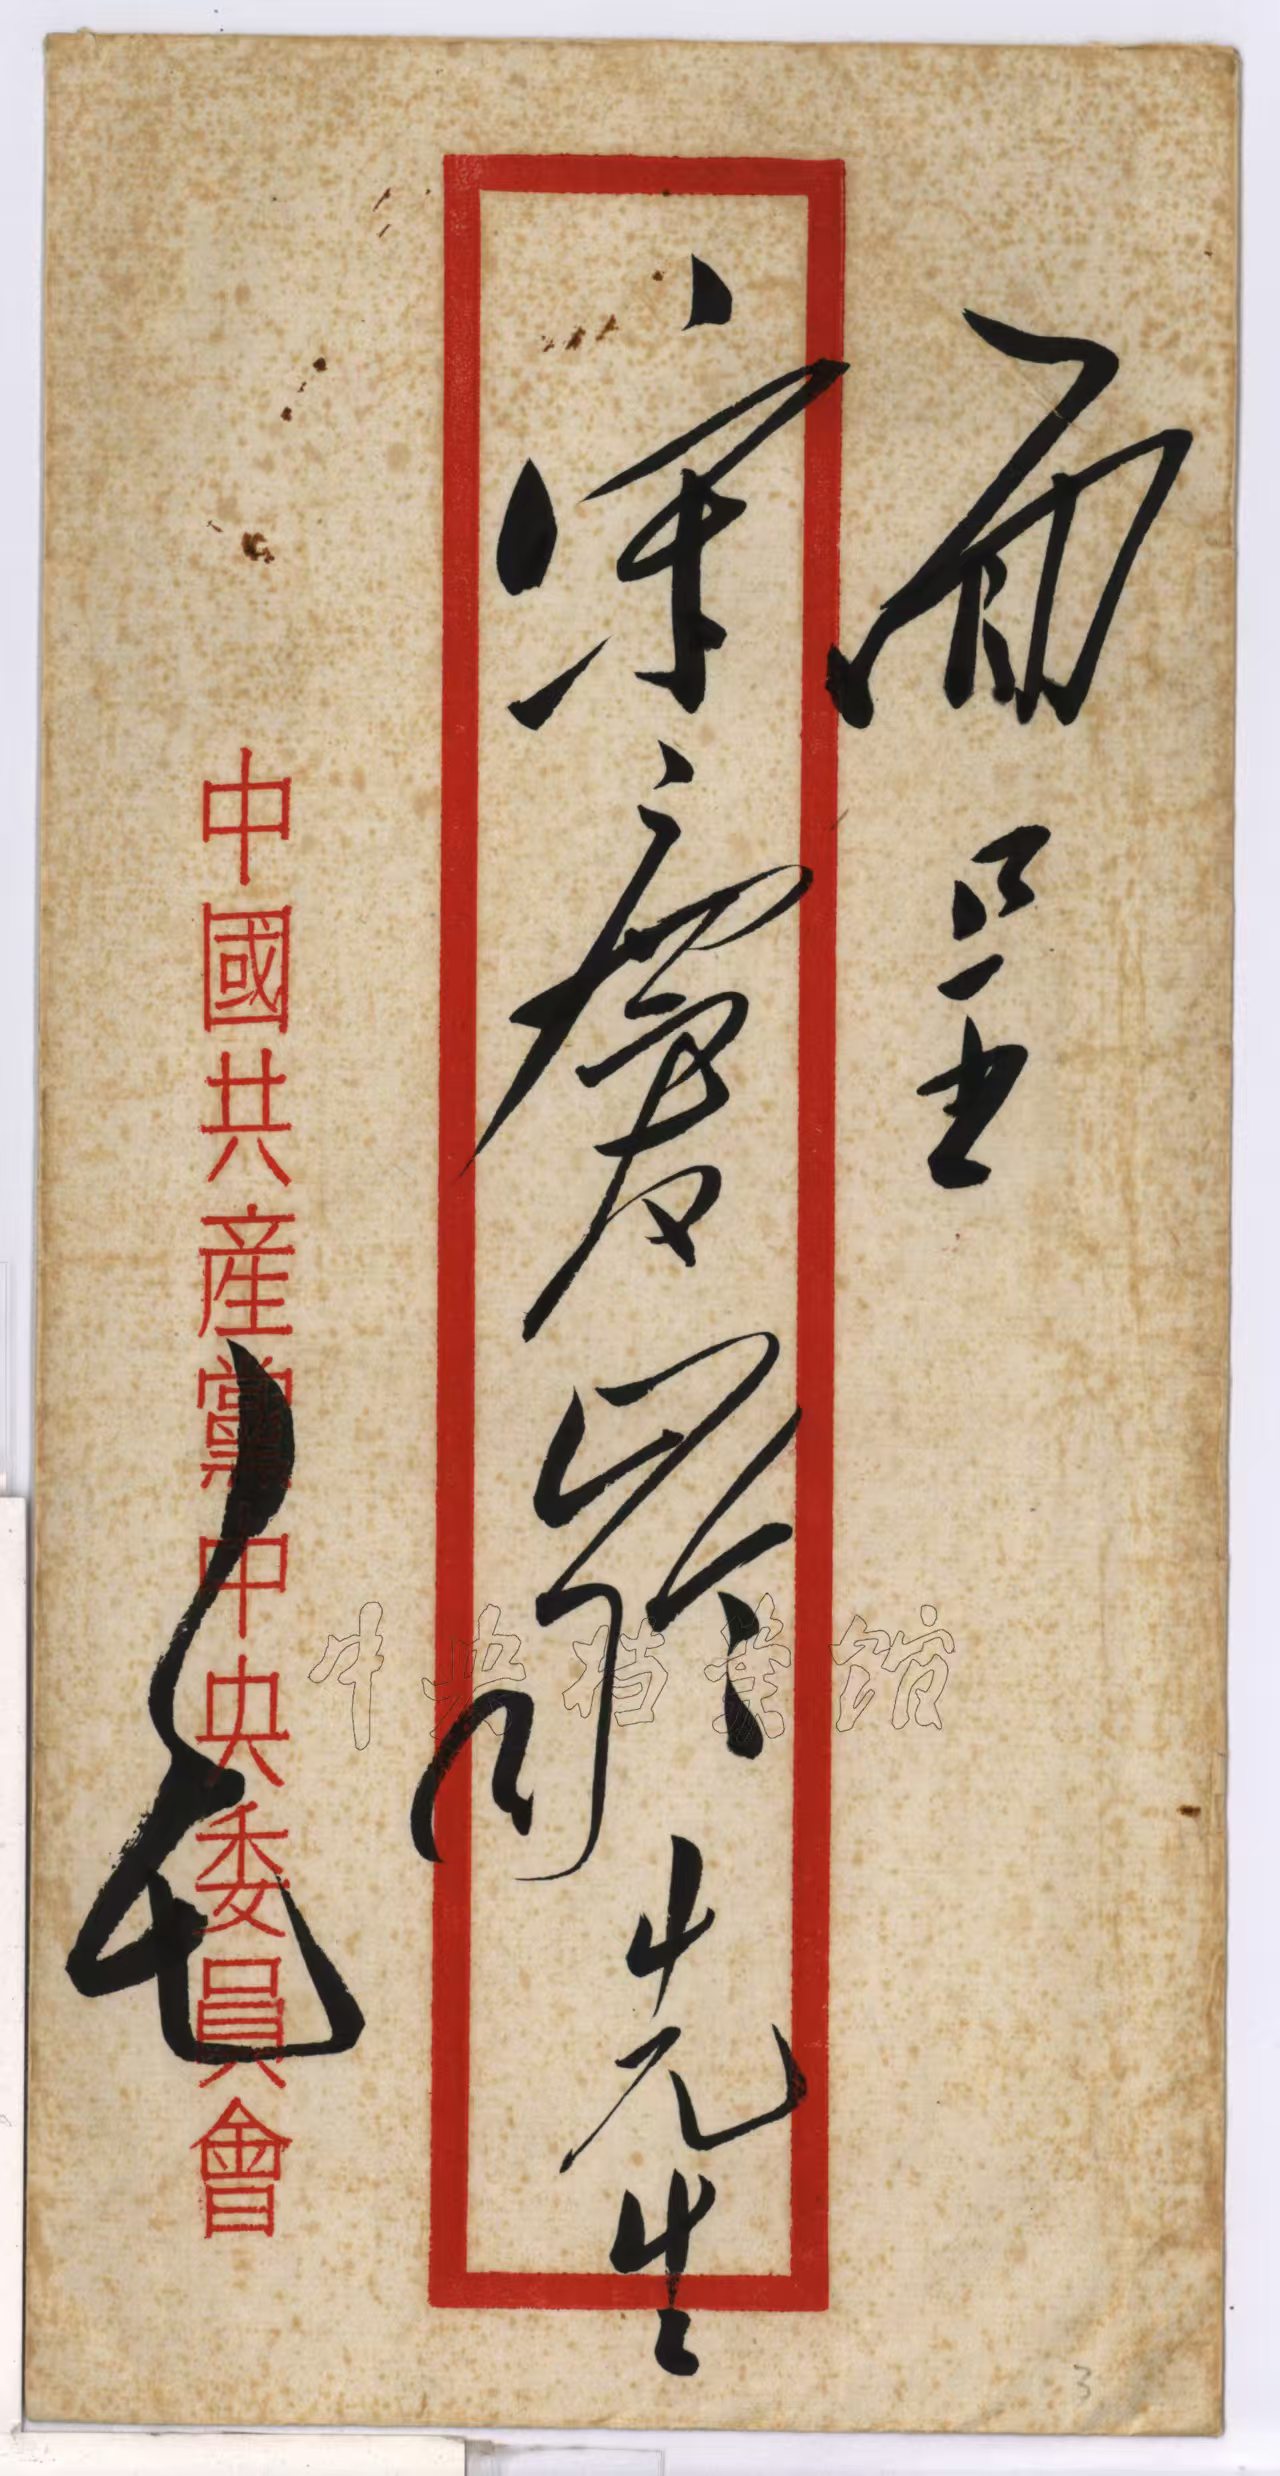 面呈
宋慶齡先生
中國共產黨中央委員會
毛
中央档案馆
3